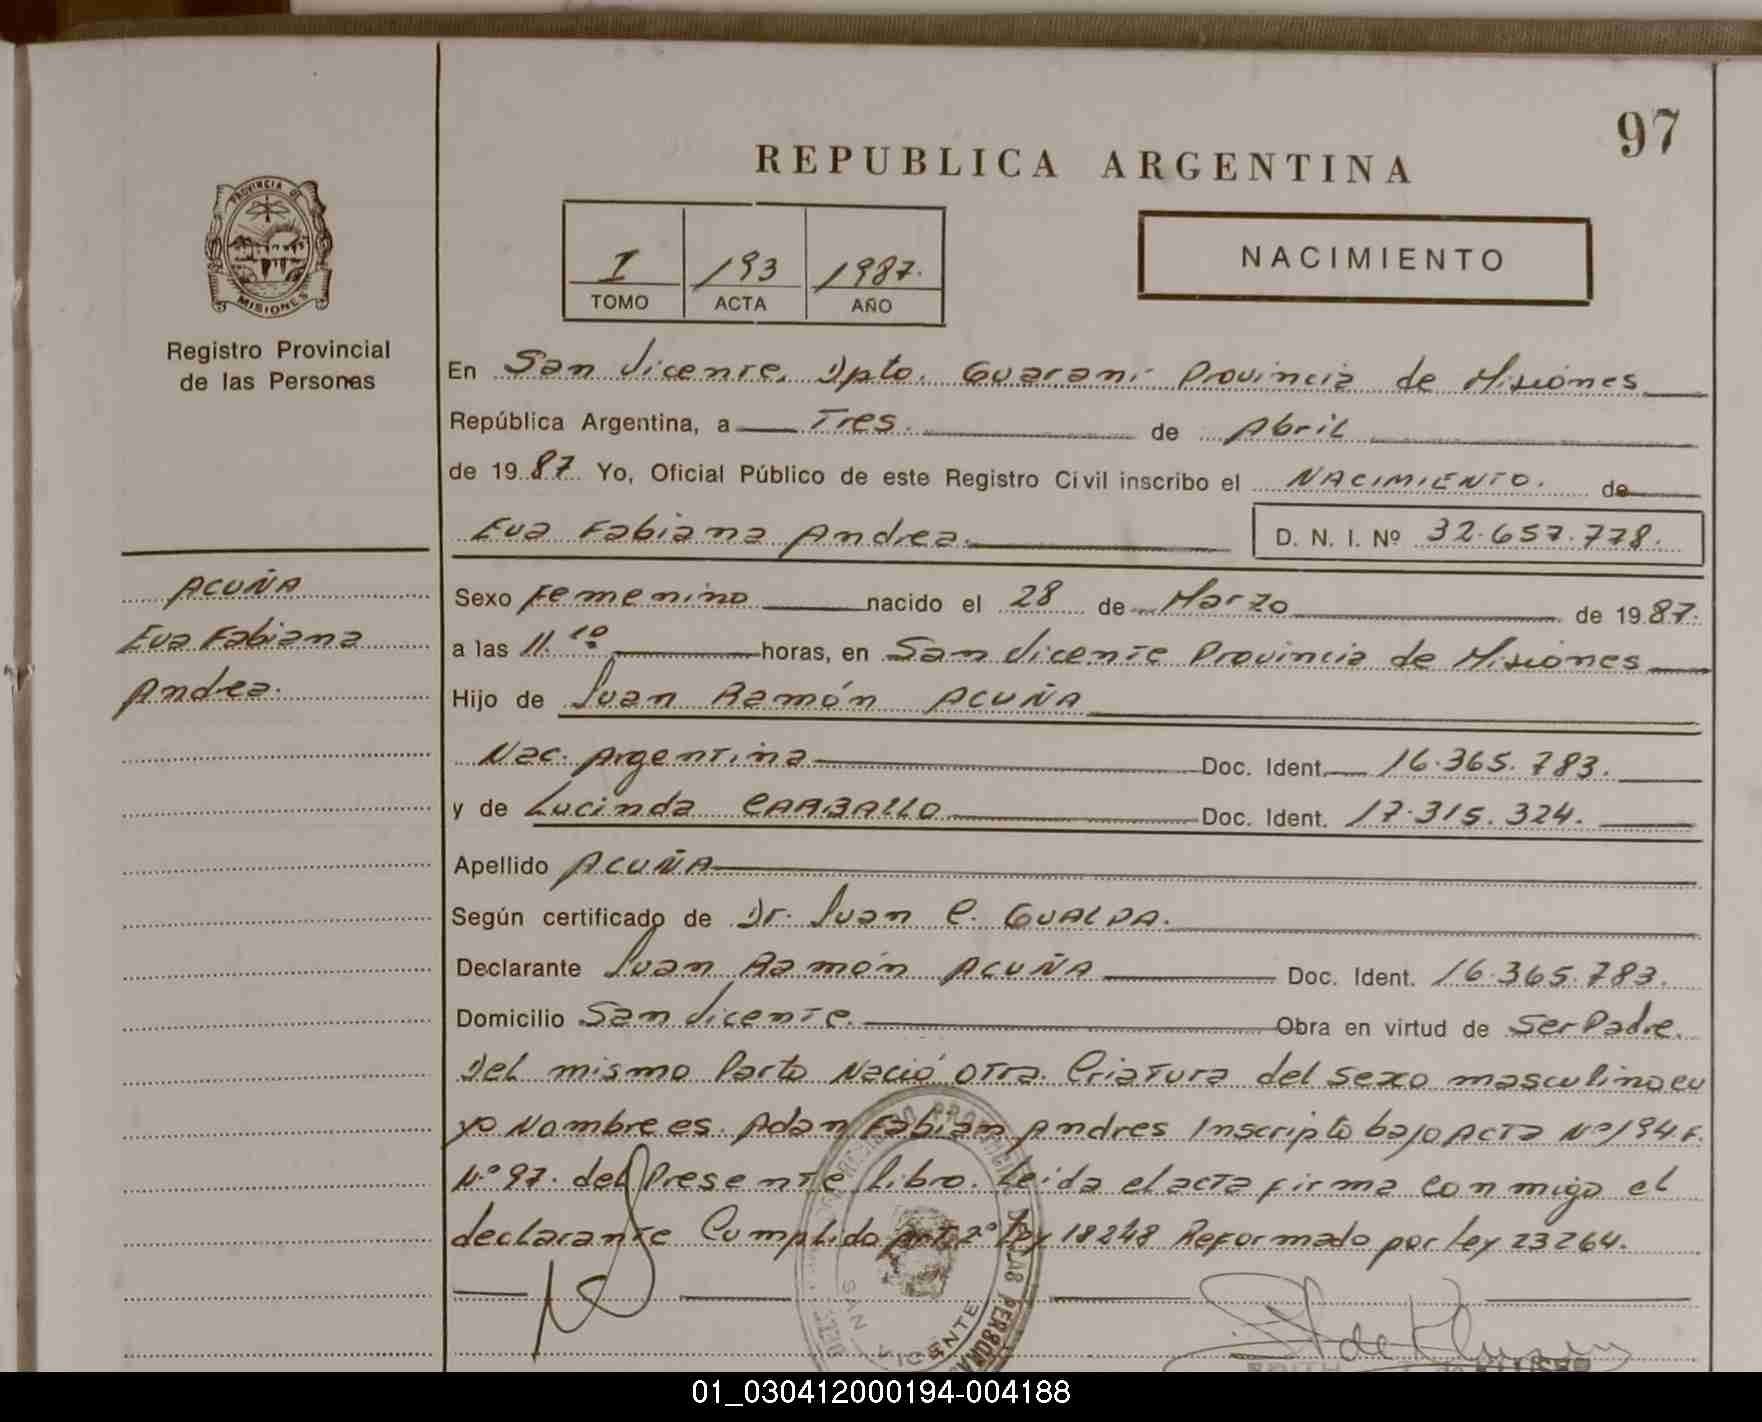 97
REPUBLICA ARGENTINA
PROVINCIA DE
MISIONES
I 193 1987.
TOMO ACTA AÑO
NACIMIENTO
Registro Provincial
de las Personas
En San Vicente, Dpto. Guaraní Provincia de Misiones
República Argentina, a Tres. de Abril
de 19 87 Yo, Oficial Público de este Registro Civil inscribo el NACIMIENTO. de
Eva Fabiana Andrea. D. N. I. Nº 32.657.778.
ACUÑA
Eva Fabiana
Andrea.
Sexo Femenino nacido el 28 de Marzo de 19 87.
a las 11.10 horas, en San Vicente Provincia de Misiones
Hijo de Juan Ramón ACUÑA
Nac. Argentina Doc. Ident. 16.365.783.
y de Lucinda CARBALLO Doc. Ident. 17.315.324.
Apellido ACUÑA
Según certificado de Dr. Juan C. GUALDA.
Declarante Juan Ramón ACUÑA Doc. Ident. 16.365.783.
Domicilio San Vicente. Obra en virtud de Ser Padre.
Del mismo Parto Nació otra Criatura del Sexo masculino cu
yo Nombre es Adan Fabian Andres Inscripto bajo Acta Nº 194 F.
Nº 97. del Presente libro. Leida el acta firma con migo el
declarante Cumplido Art. 2º Ley 18248 Reformado por Ley 23264.
SAN VICENTE
01_030412000194-004188